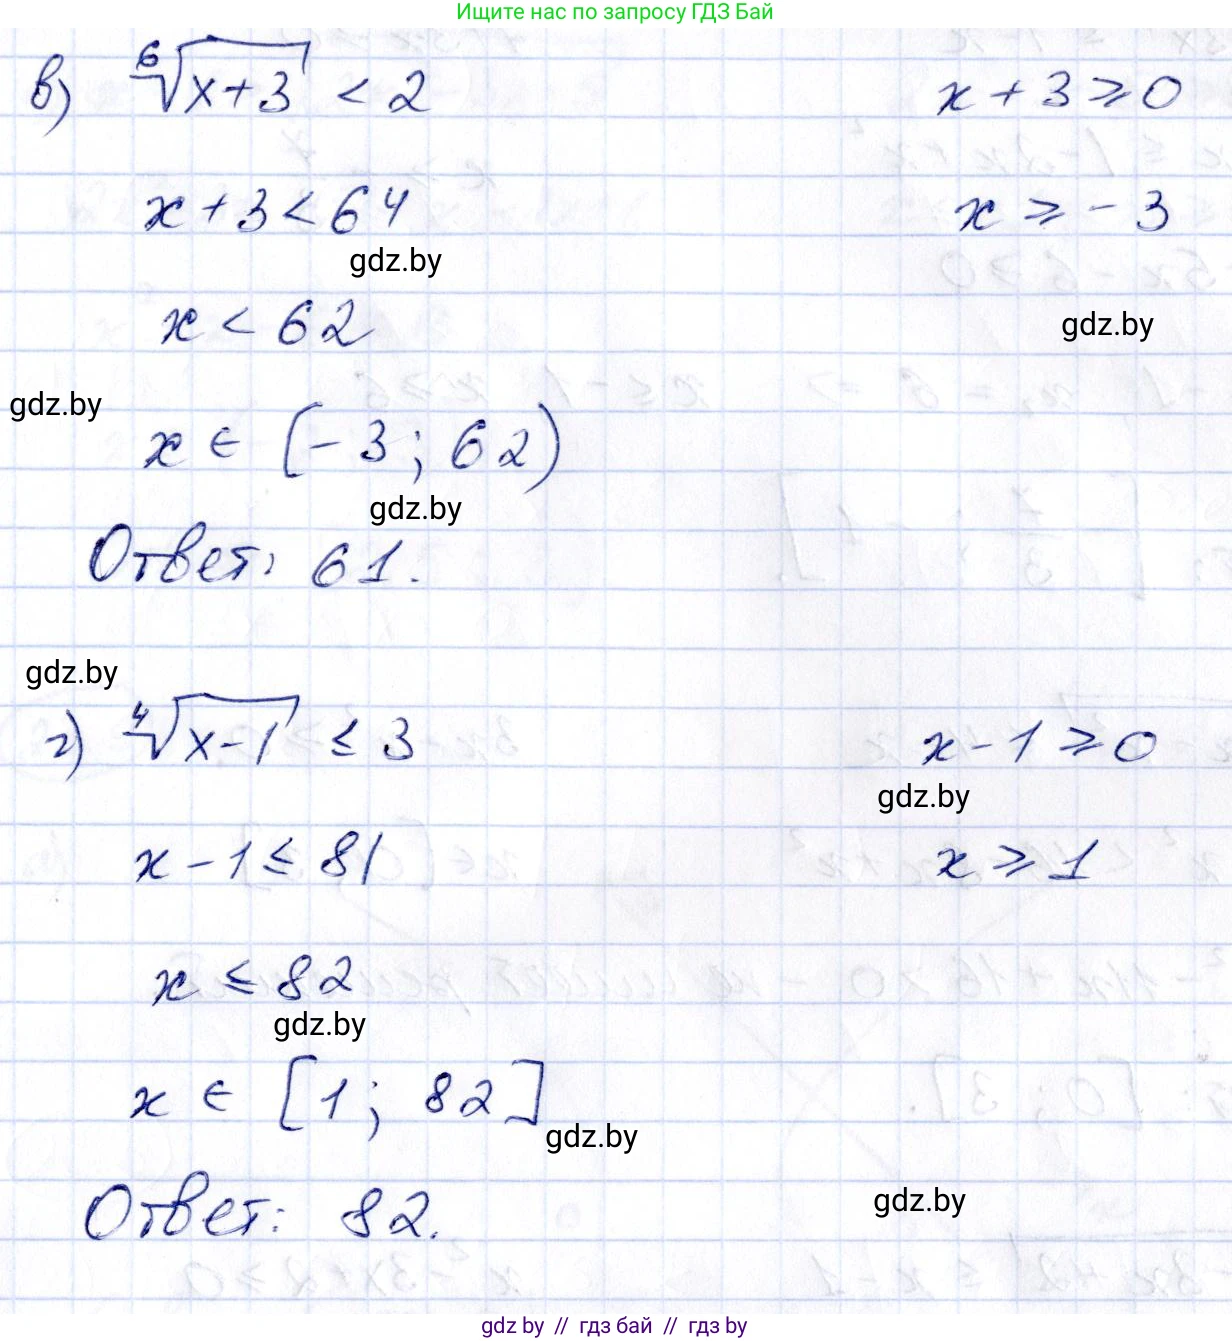 Ищите нас по запросу ГДЗ Бай
в) ⁶√(x+3) < 2    x + 3 ⩾ 0
x + 3 < 64    x ⩾ - 3
gdz.by
x < 62
gdz.by
gdz.by
x ∈ [- 3 ; 62)
gdz.by
Ответ: 61.
gdz.by
г) ⁴√(x-1) ≤ 3    x - 1 ⩾ 0
gdz.by
x - 1 ≤ 81    x ⩾ 1
x ≤ 82
gdz.by
x ∈ [1 ; 82]
gdz.by
gdz.by
Ответ: 82.
gdz.by // гдз бай // gdz by